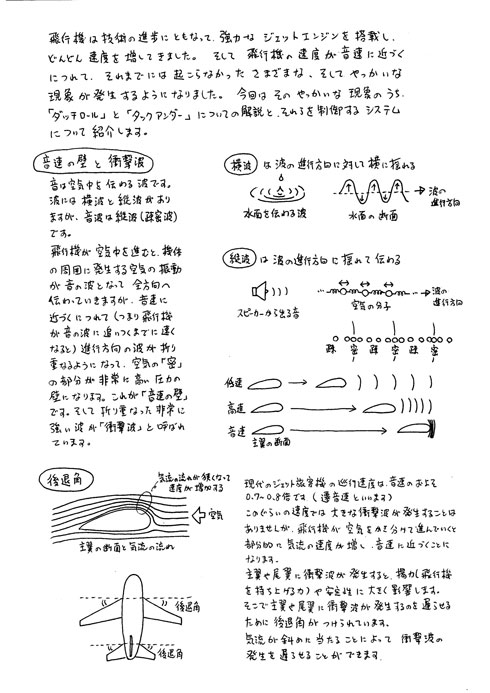 飛行機は技術の進歩にともなって、強力な ジェットエンジンを搭載し、
どんどん速度を増してきました。 そして 飛行機の速度が音速に近づく
につれて、それまでには起こらなかった さまざまな、そして やっかいな
現象が発生するようになりました。 今回は そのやっかいな現象のうち、
「ダッチロール」と「タックアンダー」についての解説と、それらを制御するシステム
について紹介します。
音速の壁と衝撃波
音は空気中を伝わる波です。
波には横波と縦波があり
ますが、音波は縦波(疎密波)
です。
飛行機が空気中を進むと、機体
の周囲に発生する空気の振動
が音の波となって全方向へ
伝わっていきますが、音速に
近づくにつれて(つまり飛行機
が音の波に追いつくまでに速く
なると)進行方向の波が折り
重なるようになって、空気の「密」
の部分が非常に高い圧力の
壁になります。これが「音速の壁」
です。そして折り重なった非常に
強い波が「衝撃波」と呼ばれ
ています。
横波 は波の進行方向に対して横に揺れる
水面を伝わる波
水面の断面
波の
進行方向
縦波 は波の進行方向に揺れて伝わる
スピーカーから出る音
空気の分子
波の
進行方向
疎 密 疎 密 疎 密
低速
高速
音速
主翼の断面
後退角
気流の流れが狭くなって
速度が増加する
空気
主翼の断面と気流の流れ
後退角
後退角
現代のジェット旅客機の巡行速度は、音速のおよそ
0.7〜0.8倍です(遷音速といいます)
このぐらいの速度では大きな衝撃波が発生することは
ありませんが、飛行機が空気をかき分けて進んでいくと
部分的に気流の速度が増し、音速に近づくことに
なります。
主翼や尾翼に衝撃波が発生すると、揚力(飛行機
を持ち上げる力)や安定性に大きく影響します。
そこで主翼や尾翼に衝撃波が発生するのを遅らせる
ために後退角がつけられています。
気流が斜めに当たることによって 衝撃波の
発生を遅らせることができます.